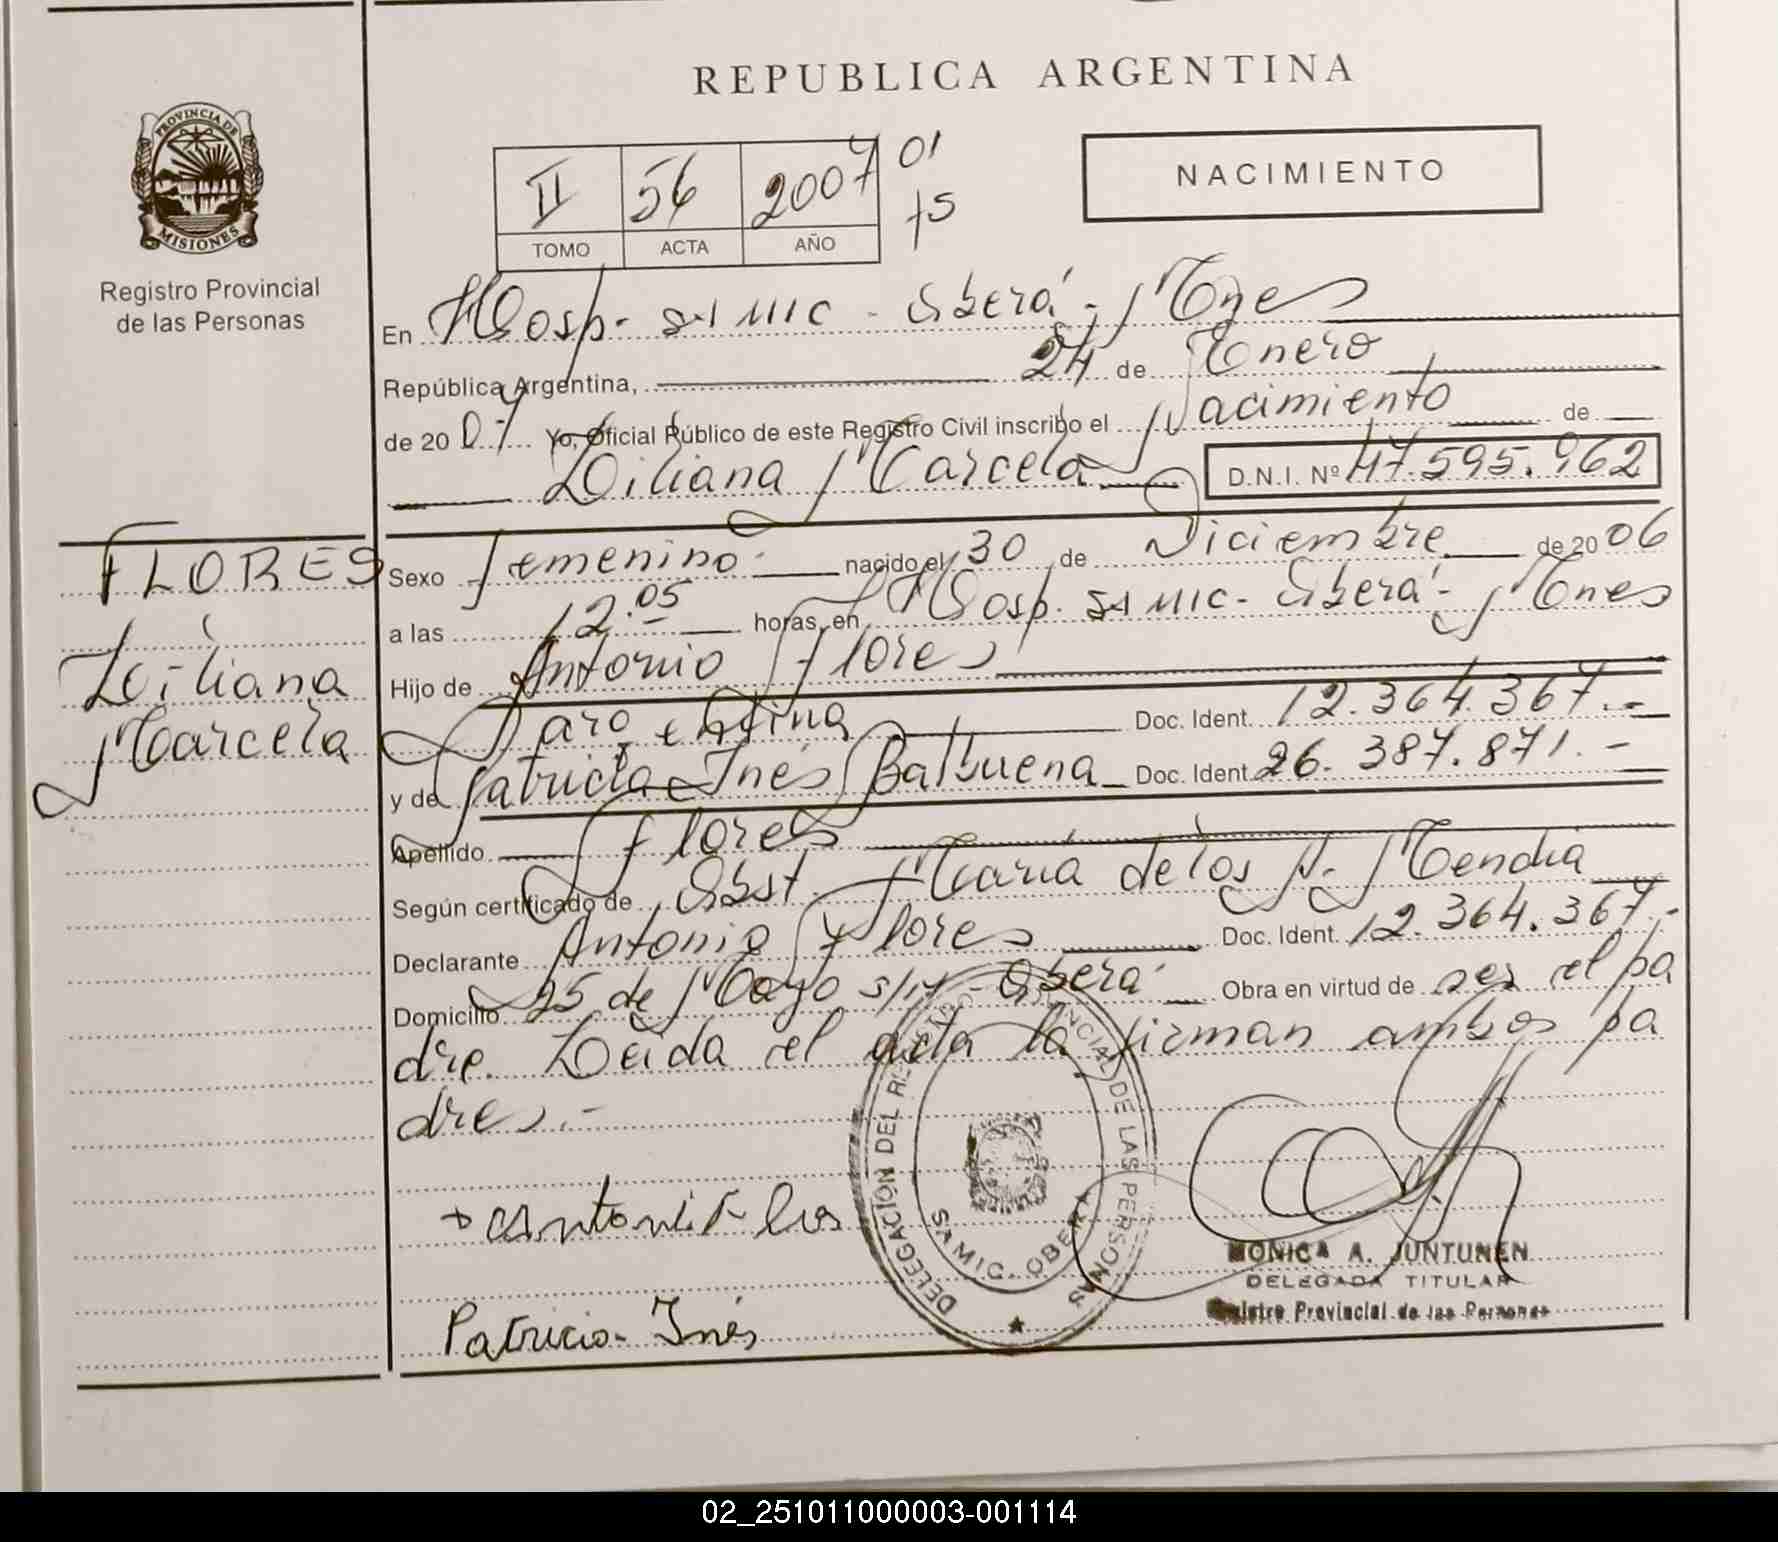 REPUBLICA ARGENTINA
PROVINCIA DE
MISIONES
Registro Provincial
de las Personas
II 56 2007
TOMO ACTA AÑO
01
75
NACIMIENTO
En Hosp. SAMIC - Oberá - Mnes
República Argentina, 24 de Enero
de 2007 Yo, Oficial Público de este Registro Civil inscribo el Nacimiento de
Liliana Marcela D.N.I. Nº 47.595.962
FLORES
Liliana
Marcela
Sexo femenino nacido el 30 de Diciembre de 2006
a las 12.05 horas, en Hosp. SAMIC - Oberá - Mnes
Hijo de Antonio Flores
Doc. Ident. 12.364.367.-
y de Patricia Inés Balbuena Doc. Ident. 26.387.871.-
Apellido Flores
Según certificado de Obst. María de los A. Mendia
Declarante Antonio Flores Doc. Ident. 12.364.367.-
Domicilio 25 de Mayo s/n - Oberá Obra en virtud de ser el pa
dre. Leida el acta la firman ambos pa
dres.-
DELEGACIÓN DEL REGISTRO PROVINCIAL DE LAS PERSONAS
SAMIC. OBERA
MONICA A. JUNTUNEN
DELEGADA TITULAR
Registro Provincial de las Personas
Patricia Inés
02_251011000003-001114